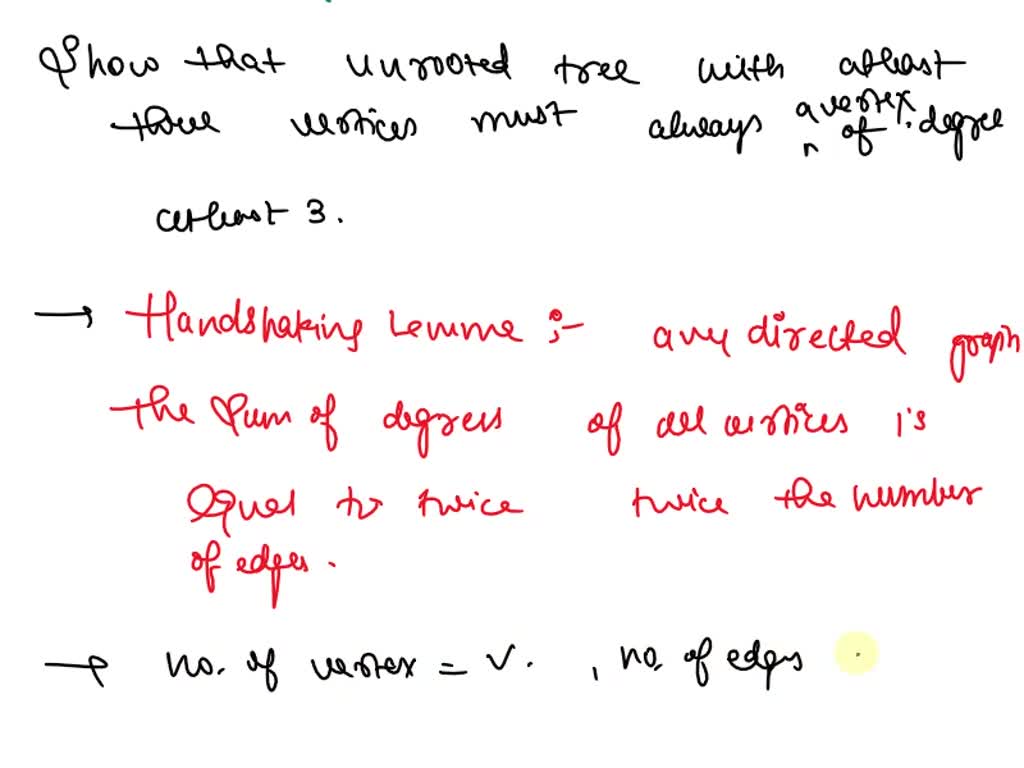 Show that unrooted tree with atleast
three vertices must always a vertex of degree
atleast 3.
→ Handshaking Lemma :- any directed graph
the sum of degrees of all vertices is
equal to twice twice the number
of edges.
→ no. of vertex = V. , no. of edges